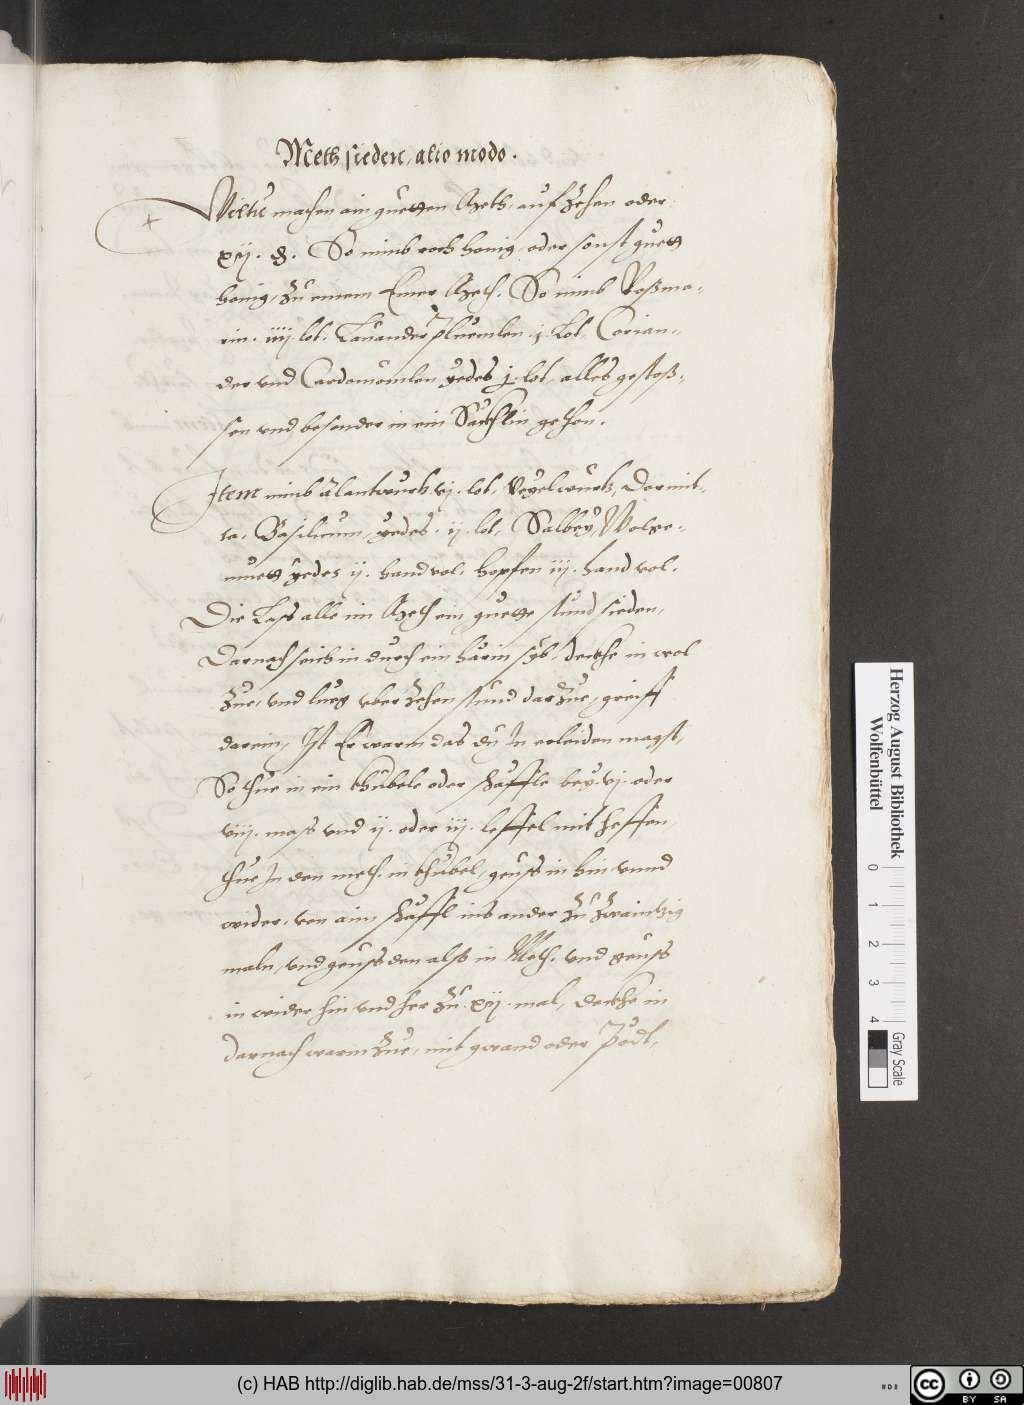 Meth sieden, alio modo.
Wiltu machen ain guetten Meth, auf zehen oder
xij. ₰. So nimb roch honig, oder sonst guett
honig, zu einem Emer Meth. So nimb Roßma-
rin. iiij. lot. Lauander Pluemlen j. Lot Corian-
der vnd Cardamömlen yedes j. lot, alles gestoß-
sen vnd besonder in ein Säckhlin gethon.
Item nimb alantwurtz vj. lot, Veyelwurtz, Darmit-
ta. Basilicum, yedes. ij. lot, Salbey, Wolge-
muett yedes ij. hand vol. hopfen iij. hand vol.
Die Laß alle im Meth ein guette stund sieden,
Darnach seich in durch ein härin syb. deckhe in wol
zue, vnd lueg vber zehen stund darzue, greiff
darein, Ist Er warm das du In erleiden magst,
So thue in ein khübele oder schäffle bey. vj. oder
viij. mass vnd ij. oder iij. leffel mit heffen,
thue In den meth. in khübel, geuß in hin vnnd
wider, von aim schäffl ins ander zu zwaintzig
maln, vnd geuß den also in Meth. vnd geuß
in wider hin vnd her zu. xij. mal, deckhe in
darnach warm zue, mit gwand oder Pödt,
Herzog August Bibliothek
Wolfenbüttel
0 1 2 3 4
Gray Scale
(c) HAB http://diglib.hab.de/mss/31-3-aug-2f/start.htm?image=00807
cc BY SA